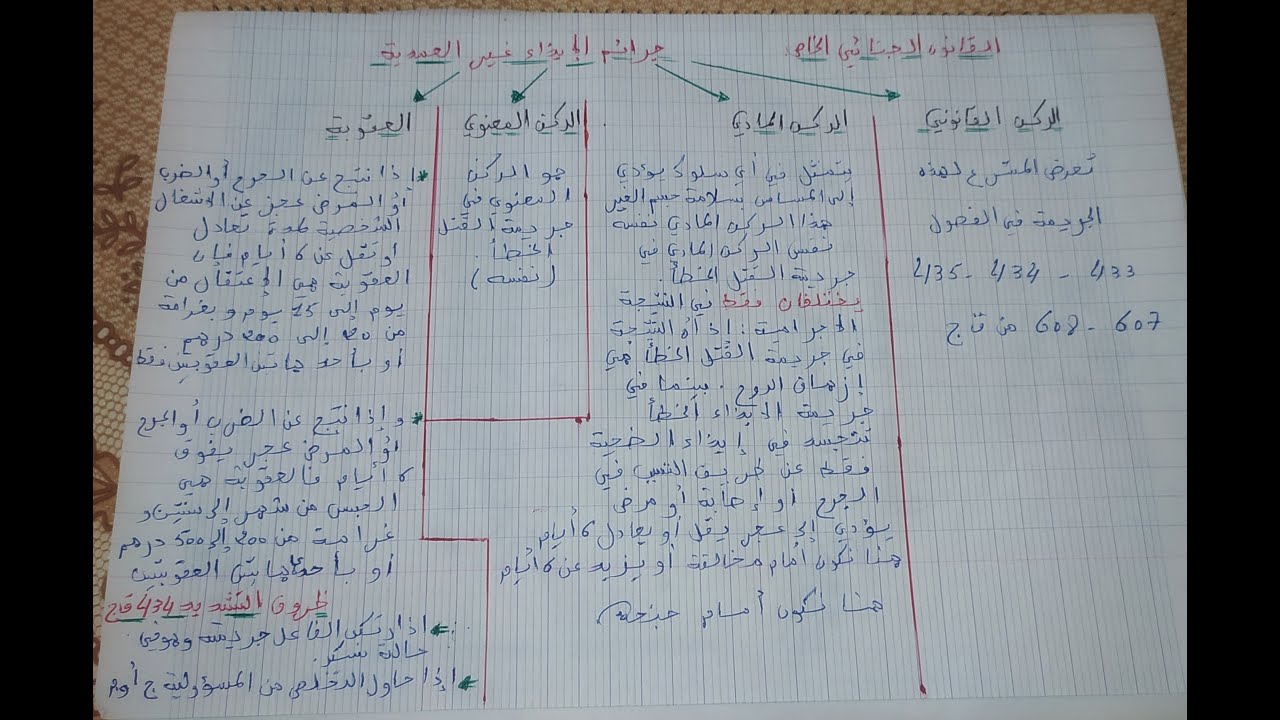 القانون الجنائي الخاص
جرائم الإيذاء غير العمدية
الركن القانوني
تعرض المشرع لهذه
الجريمة في الفصول
433 - 434 - 435
607 - 608 من ق ج
الركن المادي
يتمثل في أي سلوك يؤدي
إلى المساس بسلامة جسم الغير
هذا الركن المادي نفسه
نفس الركن المادي في
جريمة القتل الخطأ.
يختلفان فقط في النتيجة
الاجرامية: إذ أن النتيجة
في جريمة القتل الخطأ هي
إزهاق الروح. بينما في
جريمة الايذاء الخطأ
تتجسد في إيذاء الضحية
فقط عن طريق التسبب في
الجرح أو إصابة أو مرض
يؤدي إلى عجز يقل أو يعادل 6 أيام
هنا نكون أمام مخالفة أو يزيد عن 6 أيام
هنا نكون أمام جنحة
الركن المعنوي
هو الركن
المعنوي في
جريمة القتل
الخطأ.
(نفسه)
العقوبة
* اذا نتج عن الجرح أو الضرب
أو المرض عجز عن الاشغال
الشخصية لمدة تعادل
أو تقل عن 6 أيام فإن
العقوبة هي الإعتقال من
يوم إلى 15 يوم و بغرامة
من 20 إلى 200 درهم
أو بأحد هاتين العقوبتين فقط
* و إذا نتج عن الضرب أو الجرح
أو المرض عجز يفوق
6 أيام فالعقوبة هي
الحبس من شهر إلى سنتين و
غرامة من 200 إلى 500 درهم
أو بأحد هاتين العقوبتين
ظروف التشديد 434 ق ج
اذا ارتكب الفاعل جريمته وهو في
حالة سكر.
إذا حاول التخلص من المسؤولية ج أو م